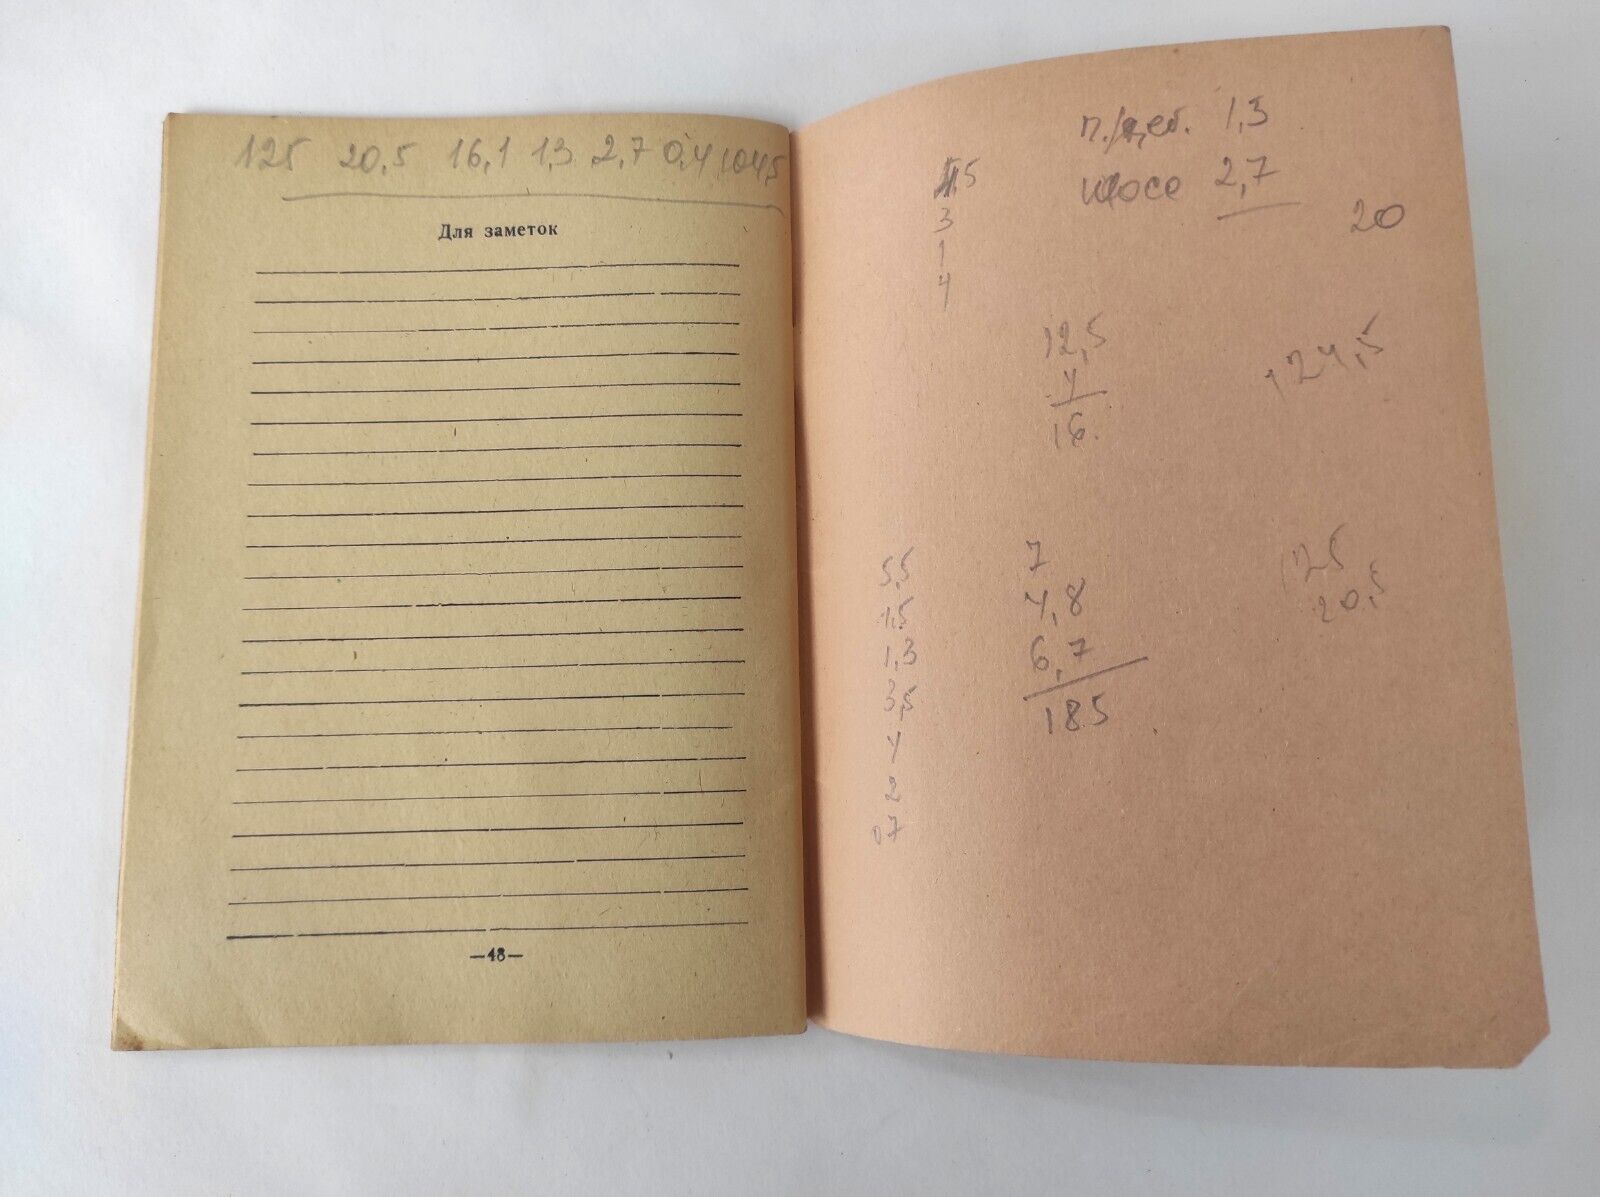 125 20,5 16,1 1,3 2,7 0,4 104,5
Для заметок
—48—
п./деб. 1,3
шоссе 2,7
20
5
3
1
4
12,5
4
16.
124,5
5,5
1,5
1,3
3,5
4
2
0,7
7
4,8
6,7
185
125
20,5